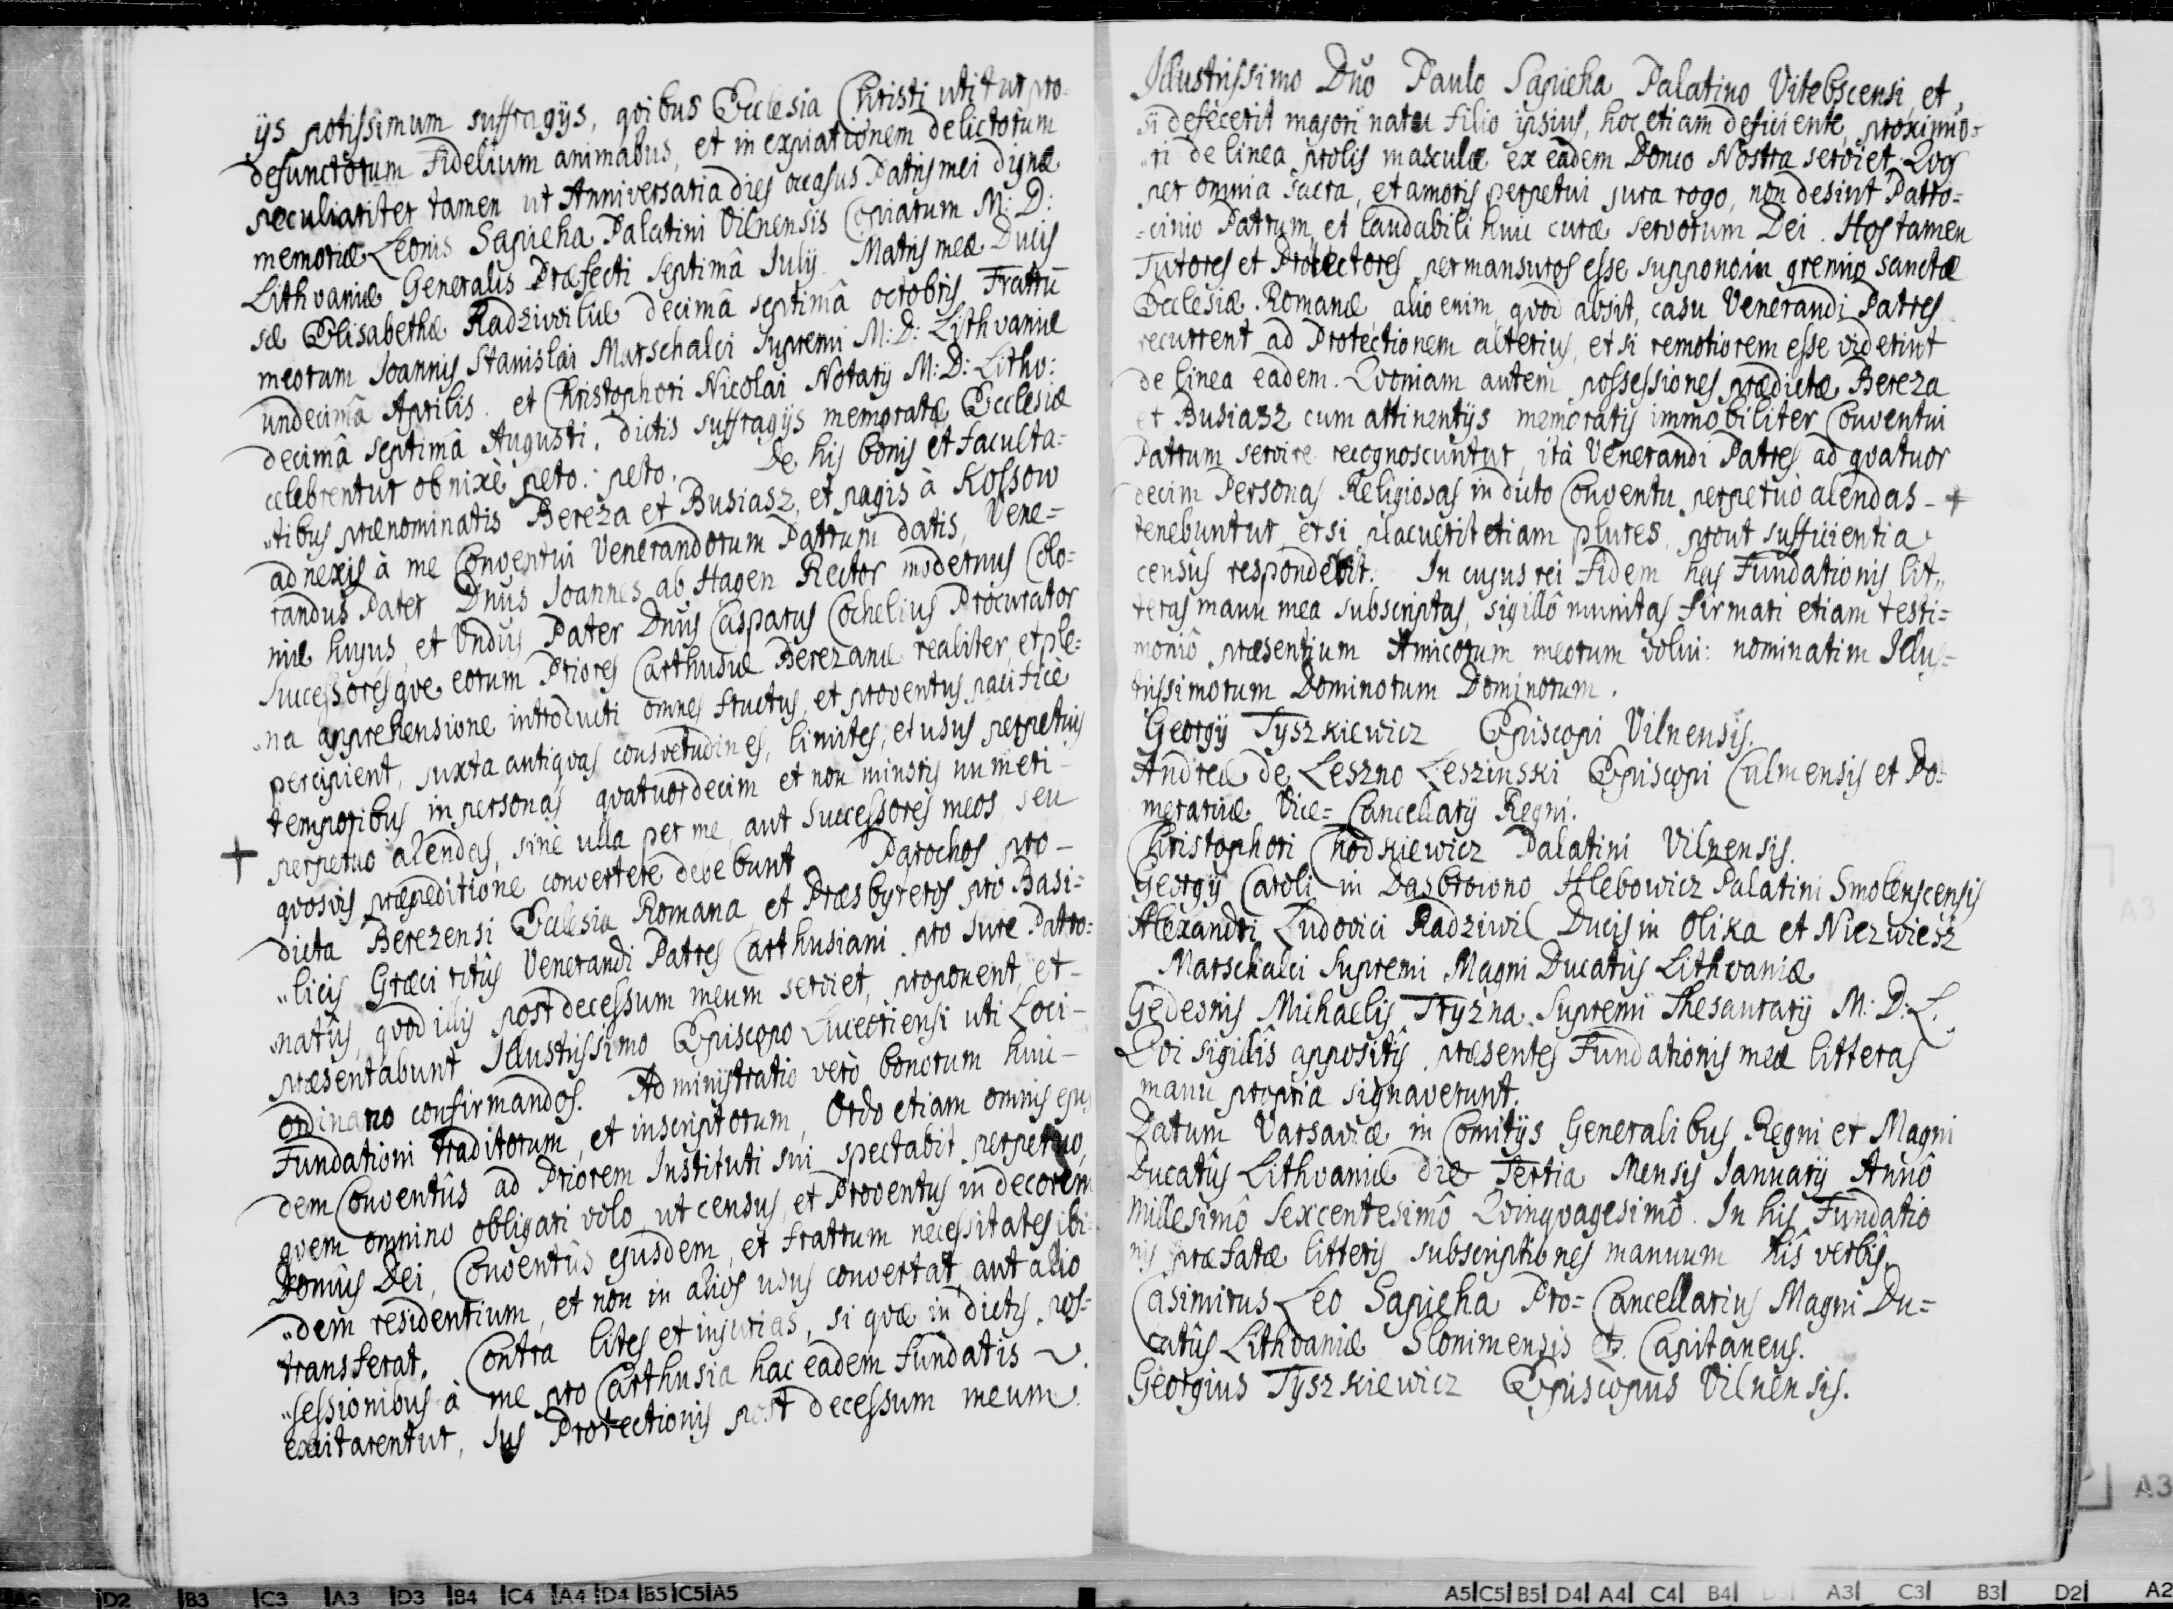 ijs potissimum suffragijs, qvibus Ecclesia Christi utitur pro
defunctorum Fidelium animabus, et in expiationem delictorum
peculiariter tamen ut Anniversaria dies occasus Patris mei dignæ
memoriæ Leonis Sapieha Palatini Vilnensis Copiarum M: D:
Lithvaniæ Generalis Præfecti septimâ Julij. Matris meæ Ducis
sæ Elisabethæ Radziviliæ decimâ septimâ octobris Fratrū
meorum Joannis Stanislai Marschalci Supremi M: D: Lithvaniæ
undecimâ Aprilis. et Christophori Nicolai Notarij M: D: Lithv:
decimâ septimâ Augusti, dictis suffragijs memoratæ Ecclesiæ
celebrentur obnixè peto: peto. De his bonis et faculta=
„tibus prænominatis Bereza et Busiasz, et pagis à Kossow
adnexis à me Conventui Venerandorum Patrum datis, Vene=
randus Pater Dnūs Joannes ab Hagen Rector modernus Colo=
niæ hujus, et Vndūs Pater Dnūs Casparus Cochelius Procurator
Successoresqve eorum Priores Carthusiæ Berezanæ realiter, et ple=
„na apprehensione introducti omnes fructus, et proventus pacificè
percipient, juxta antiqvas consvetudines, limites, et usus perpetuis
temporibus in personas qvatuordecim et non minoris numeri-
+ perpetuo alendas, sine ulla per me, aut Successores meos seu
qvosvis præpeditione convertere debebunt. Parochos pro-
dicta Berezensi Ecclesia Romana et Præsbyteros pro Basi=
„licis Græci ritûs Venerandi Patres Carthusiani pro Jure Patro=
„natûs, qvod illis post decessum meum serviet, proponent, et-
præsentabunt Illustrissimo Episcopo Luceoriensi uti Loci-
ordinario confirmandos. Administratio verò bonorum huic-
Fundationi traditorum, et inscriptorum, Ordo etiam omnis ejus
dem Conventûs ad Priorem Instituti sui spectabit perpetuo,
qvem omnino obligari volo, ut census, et Proventus in decorem
Domûs Dei, Conventûs ejusdem, et fratrum necessitates ibi-
„dem residentium, et non in alios usus convertat, aut alio
transferat. Contra lites et injurias, si qvæ in dictis pos=
„sessionibus à me pro Carthusia hac eadem fundatis
excitarentur, Jus Protectionis post decessum meum
Illustrissimo Dnō Paulo Sapieha Palatino Vitebscensi, et,
si defecerit majori natu filio ipsius, hoc etiam deficiente, proximio=
„ri de linea prolis masculæ ex eadem Domo Nostra serviet. Qvos
per omnia sacra, et amoris perpetui jura rogo, non desint Patro=
=cinio Patrum, et laudabili huic curæ servorum Dei. Hos tamen
Tutores et Protectores permansuros esse suppono in gremio sanctæ
Ecclesiæ Romanæ, alio enim, qvod absit, casu Venerandi Patres
recurrent ad Protectionem alterius, et si remotiorem esse viderint
de linea eadem. Qvoniam autem possessiones prædictæ Bereza
et Busiasz cum attinentijs memoratis immobiliter Conventui
Patrum servire recognoscuntur, ità Venerandi Patres ad qvatuor
decim Personas Religiosas in dicto Conventu perpetuò alendas - +
tenebuntur, et si placuerit etiam plures, prout sufficientia
censûs respondebit. In cujus rei Fidem has Fundationis lit„
teras manu mea subscriptas, sigillô munitas firmari etiam testi=
moniô præsentium Amicorum meorum volui: nominatim Illus=
trissimorum Dominorum Dominorum.
Georgij Tyszkiewicz Episcopi Vilnensis.
Andreæ de Leszno Leszinski Episcopi Culmensis et Po=
meraniæ Vice= Cancellarij Regni.
Christophori Chodkiewicz Palatini Vilnensis.
Georgij Caroli in Dasbrowno Hlebowicz Palatini Smolenscensis
Alexandri Ludovici Radziwil Ducis in Olika et Niezwiesz
Marschalci Supremi Magni Ducatûs Lithvaniæ
Gedeonis Michaelis Tryzna Supremi Thesaurarij M: D: L.
Qvi sigillis appositis præsentes Fundationis meæ litteras
manu propria signaverunt.
Datum Varsaviæ in Comitijs Generalibus Regni et Magni
Ducatûs Lithvaniæ die Tertia Mensis Januarij Annô
Millesimô Sexcentesimô Qvinqvagesimô. In his Fundatio
nis præfatæ litteris subscriptiones manuum his verbis.
Casimirus Leo Sapieha Pro= Cancellarius Magni Du=
catûs Lithvaniæ Slonimensis etc. Capitaneus.
Georgius Tyszkiewicz Episcopus Vilnensis.